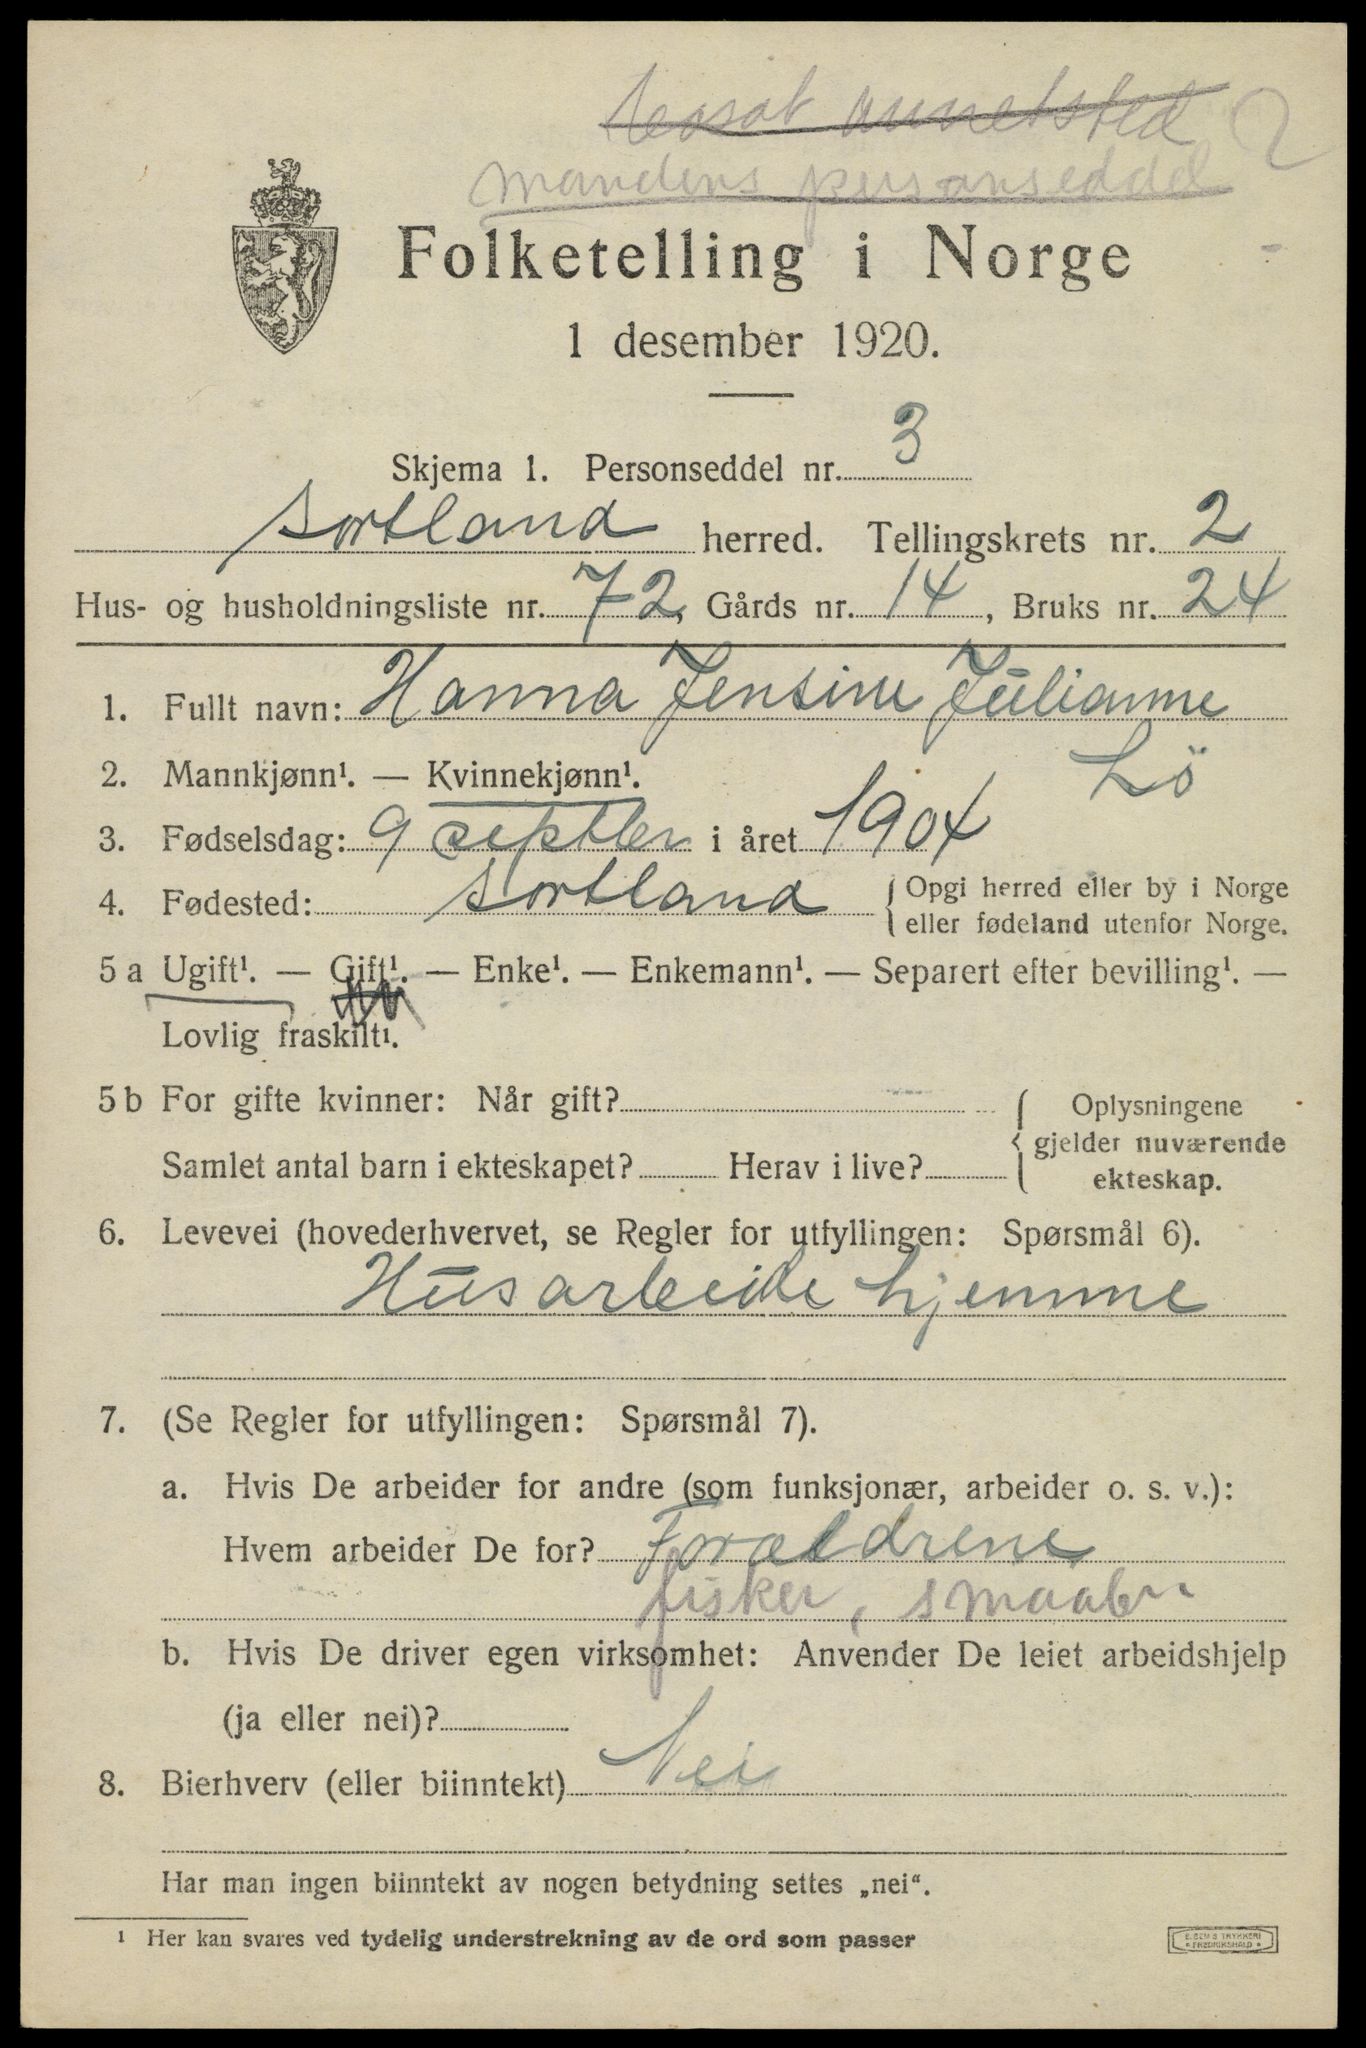 annetsted 2
mandens personseddel
Folketelling i Norge
1 desember 1920.
Skjema 1. Personseddel nr. 3
Sortland herred. Tellingskrets nr. 2
Hus- og husholdningsliste nr. 72, Gårds nr. 14, Bruks nr. 24
1. Fullt navn: Hanna Jensine Julianne
Lö
2. Mannkjønn¹. — Kvinnekjønn¹.
3. Fødselsdag: 9 septber i året 1904
4. Fødested: Sortland {Opgi herred eller by i Norge
eller fødeland utenfor Norge.
5 a Ugift¹. — Gift¹. — Enke¹. — Enkemann¹. — Separert efter bevilling¹. —
Lovlig fraskilt¹.
5 b For gifte kvinner: Når gift? { Oplysningene
gjelder nuværende
Samlet antal barn i ekteskapet? Herav i live?
ekteskap.
6. Levevei (hovederhvervet, se Regler for utfyllingen: Spørsmål 6).
Husarbeide hjemme
7. (Se Regler for utfyllingen: Spørsmål 7).
a. Hvis De arbeider for andre (som funksjonær, arbeider o. s. v.):
Hvem arbeider De for? Forældrene
fisker, smaabr
b. Hvis De driver egen virksomhet: Anvender De leiet arbeidshjelp
(ja eller nei)?
8. Bierhverv (eller biinntekt) Nei
Har man ingen biinntekt av nogen betydning settes „nei".
¹ Her kan svares ved tydelig understrekning av de ord som passer
E. SEMS TRYKKERI
• FREDRIKSHALD •